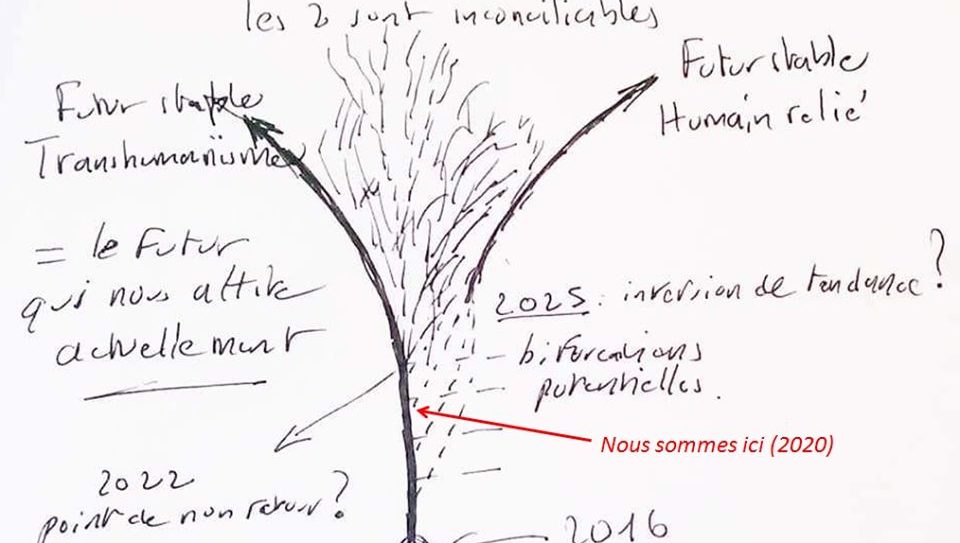 les 2 sont inconciliables
Futur stable
Transhumanisme
= le Futur
qui nous attire
actuellement
2022
point de non retour ?
Futur stable
Humain relié
2025 : inversion de tendance ?
bifurcations
potentielles.
Nous sommes ici (2020)
2016